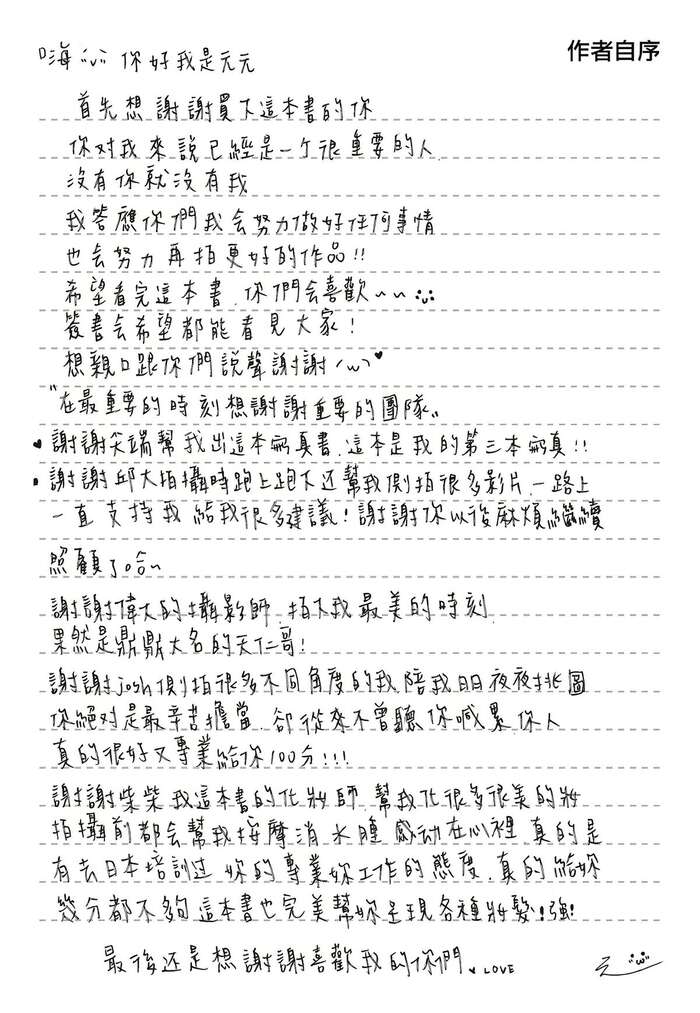 作者自序
嗨 ¨v¨ 你好我是元元
首先想謝謝買下這本書的你
你对我來說已經是一个很重要的人
沒有你就沒有我
我答應你們我会努力做好任何事情
也会努力再拍更好的作品!!
希望看完這本書,你們会喜歡~~
簽書会希望都能看見大家!
想親口跟你們說聲謝謝 ♥
"在最重要的時刻想謝謝重要的團隊"
♥ 謝謝尖端幫我出這本寫真書,這本是我的第三本寫真!!
謝謝邱大拍攝時跑上跑下还幫我側拍很多影片,一路上
一直支持我給我很多建議!謝謝你以後麻煩繼續
照顧了哈~
謝謝偉大的攝影師,拍下我最美的時刻
果然是鼎鼎大名的天仁哥!
謝謝josh側拍很多不同角度的我陪我日日夜夜挑圖
你絕对是最辛苦擔當,卻從來不曾聽你喊累你人
真的很好又專業給你100分!!!
謝謝柴柴,我這本書的化妝師,幫我化很多很美的妝
拍攝前都会幫我按摩消水腫,感动在心裡,真的是
有去日本培訓过,妳的專業妳工作的態度,真的給妳
幾分都不夠,這本書也完美幫妳呈現各種妝髮!強!
最後还是想謝謝喜歡我的你們 ♥ LOVE
元